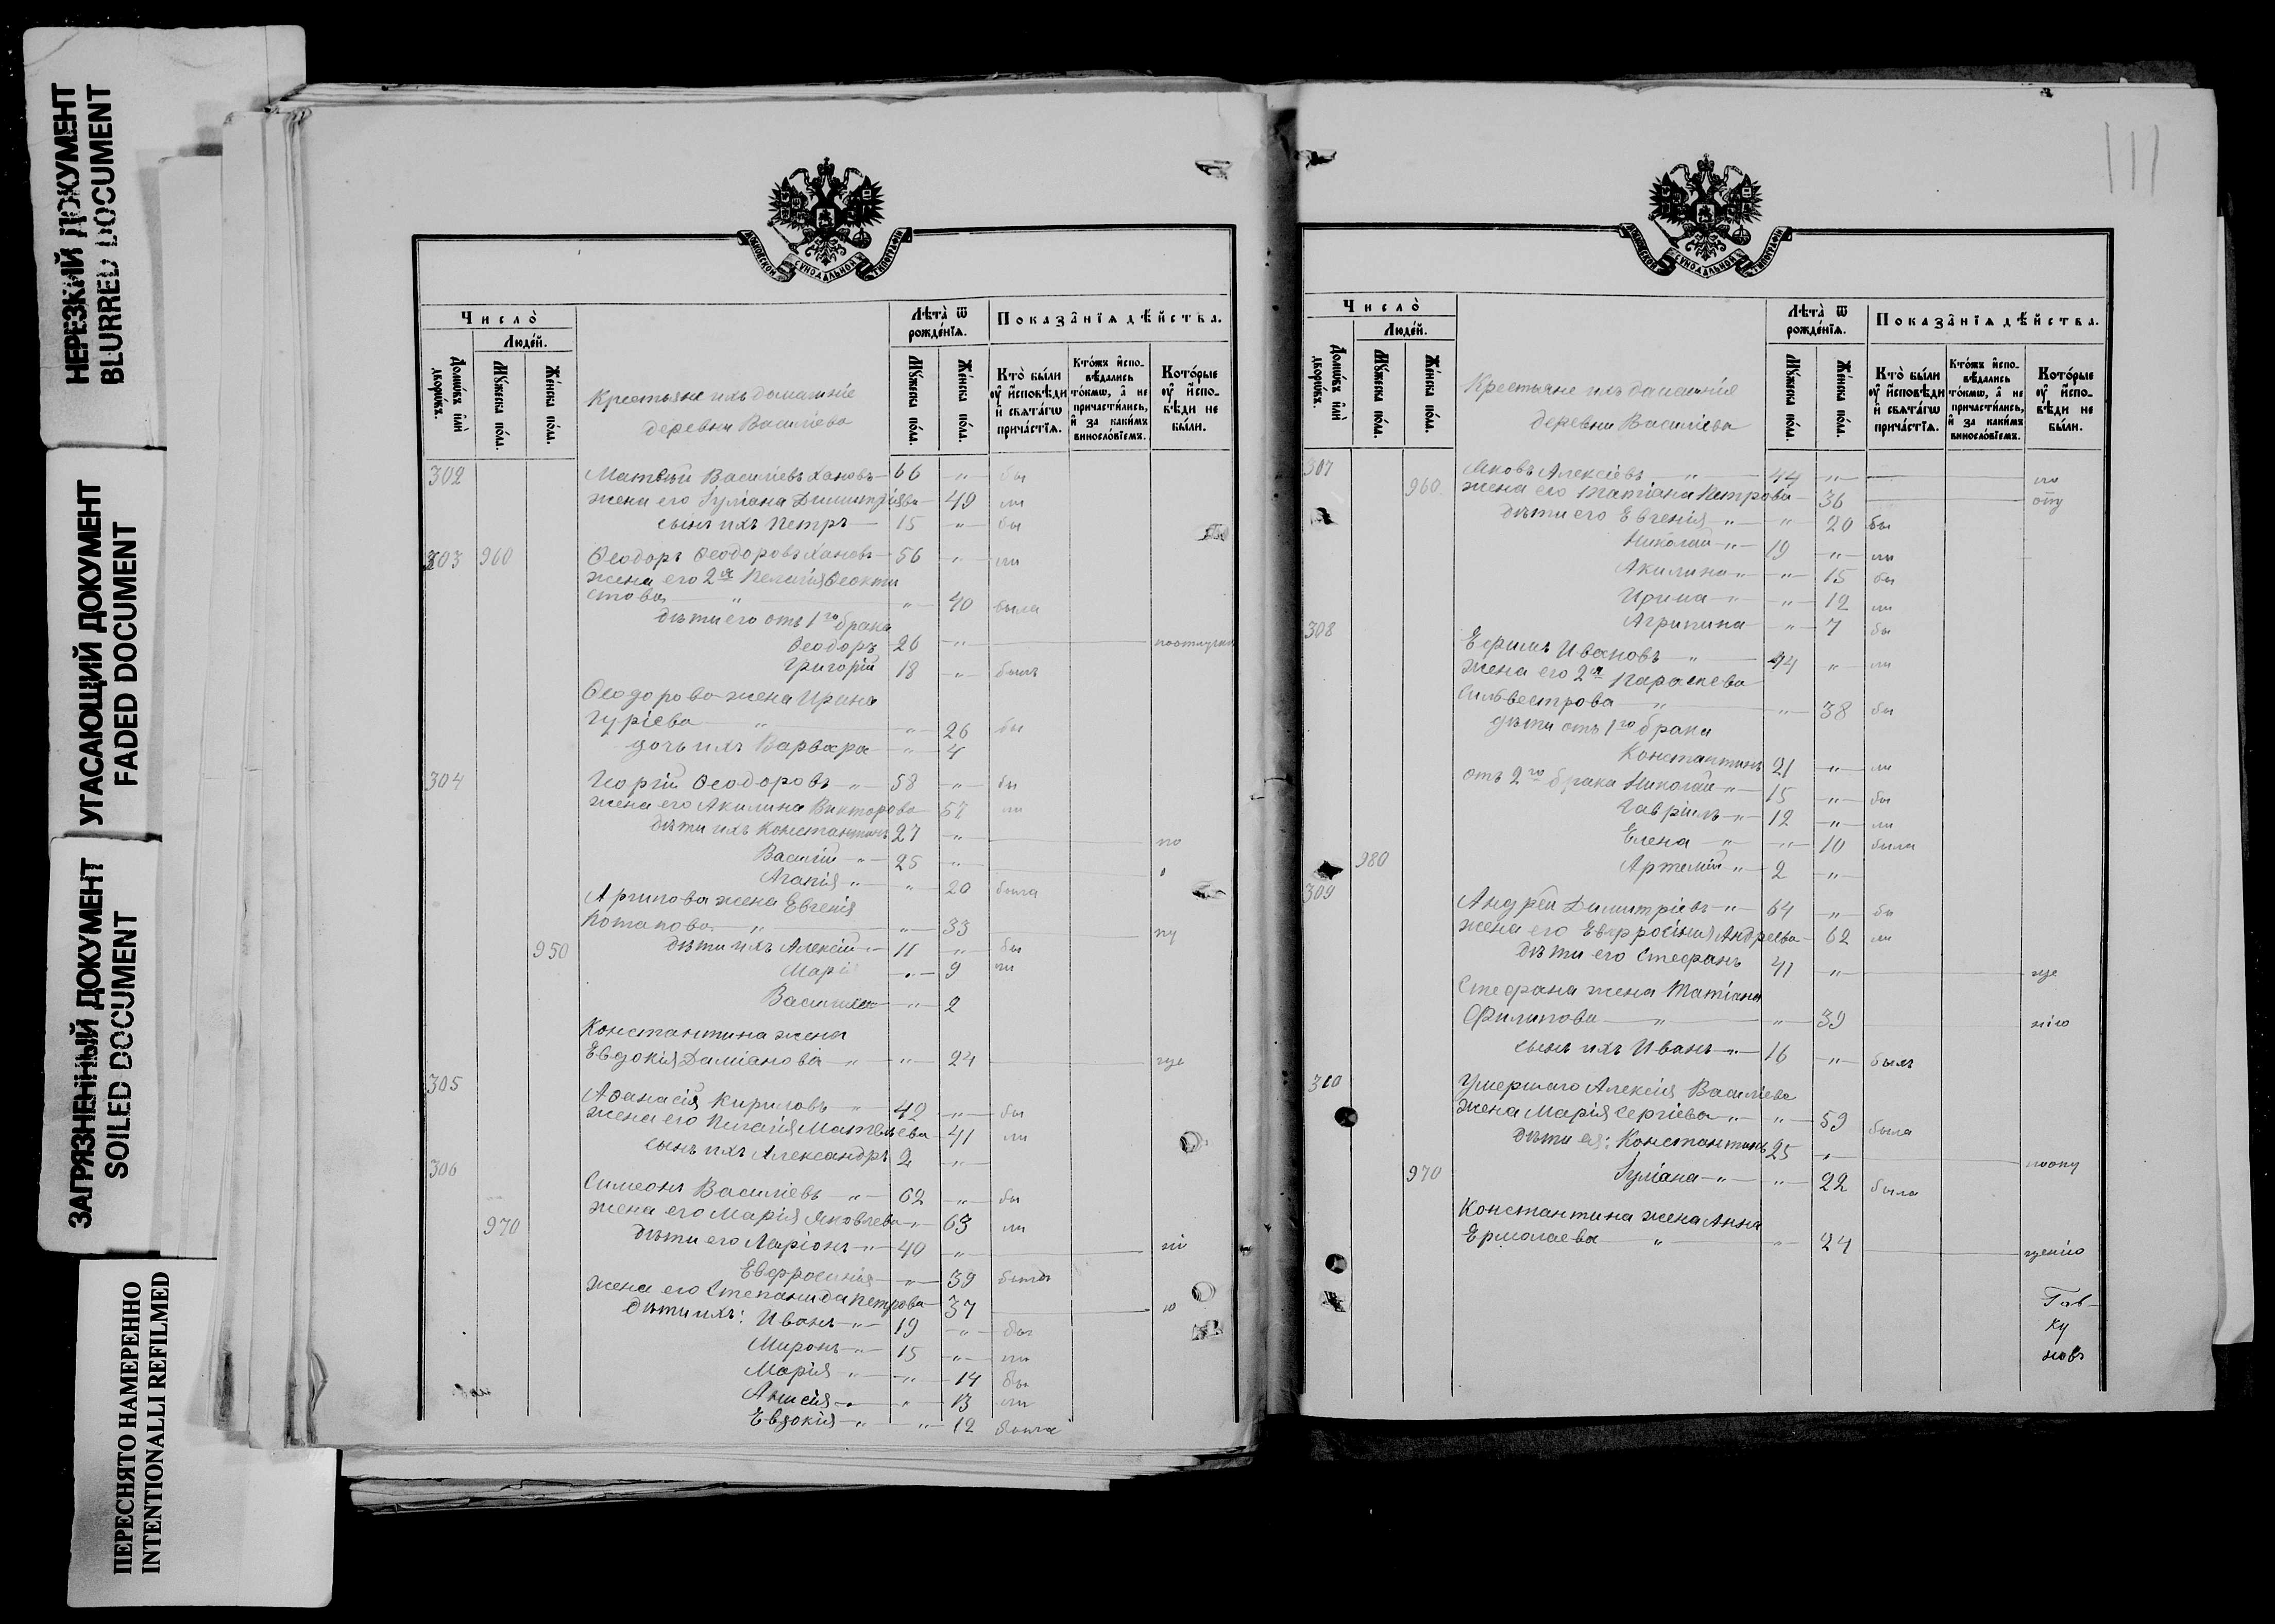 НЕРЕЗКИЙ ДОКУМЕНТ
BLURRED DOCUMENT
УГАСАЮЩИЙ ДОКУМЕНТ
FADED DOCUMENT
ЗАГРЯЗНЕННЫЙ ДОКУМЕНТ
SOILED DOCUMENT
ПЕРЕСНЯТО НАМЕРЕННО
INTENTIONALLI REFILMED
МОСКОВСКОЙ СѴНОДАЛЬНОЙ ТИПОГРАФІИ
Число̀
Людей.
Домѡ́въ и҆лѝ дворѡ́въ.
Мꙋ́жеска пола.
Же́нска пола.
Крестьяне ихъ домашніе
деревни Василіева
Лѣта̀ ѿ рожде́нїѧ.
Мꙋ́жеска пола.
Же́нска пола.
Показа̑нїѧ дѣ́йства.
Кто̀ бы́ли ᲂу҆ и҆сповѣди и҆ свѧта́гѡ прича́стїѧ.
Кто́жъ и҆сповѣдались то́кмѡ, а҆ не причасти́лись, и҆ за каки́мъ виносло́вїемъ.
Кото́рые ᲂу҆ и҆сповѣди не бы́ли.
302 Матвѣй Василіевъ Хановъ 66 " бы
жена его Іуліана Димитріева 49 ли
сынъ ихъ Петръ 15 " бы
303 960 Ѳеодоръ Ѳеодоровъ Хановъ 56 " ли
жена его 2я Пелагія Ѳеокти
стова " " 40 была
дѣти его отъ 1го брака
Ѳеодоръ 26 "
Григорій 18 " былъ
Ѳеодорова жена Ирина
Гуріева " " 26 бы
дочь ихъ Варвара " 4
304 Георгій Ѳеодоровъ " 58 " бы
жена его Акилина Викторова 57 ли
дѣти ихъ Константинъ 27 " по
Василій " 25 "
Агапія " " 20 была
Архипова жена Евгенія
Потапова " " 33
950 дѣти ихъ Алексій " 11 " бы
Марія " 9 ли
Василиса " 2
Константина жена
Евдокія Даміанова " " 24
305 Аѳанасія Кириловъ " 42 " бы
жена его Пелагія Матвѣева 41 ли
сынъ ихъ Александръ 2 "
306 Симеонъ Василіевъ " 62 " бы
жена его Марія Яковлева " 63 ли
970 дѣти его Ларіонъ " 40 "
Евфросинія " 39 была
жена его Степанида Петрова 37 ю
дѣти ихъ: Иванъ " 19 " бы
Миронъ " 15 " ли
Марія " " 14 бы
Анисія " " 13 ли
Евдокія " " 12 была
111
МОСКОВСКОЙ СѴНОДАЛЬНОЙ ТИПОГРАФІИ
Число̀
Людей.
Домѡ́въ и҆лѝ дворѡ́въ.
Мꙋ́жеска пола.
Же́нска пола.
Крестьяне ихъ домашнія
деревни Василіева
Лѣта̀ ѿ рожде́нїѧ.
Мꙋ́жеска пола.
Же́нска пола.
Показа̑нїѧ дѣ́йства.
Кто̀ бы́ли ᲂу҆ и҆сповѣди и҆ свѧта́гѡ прича́стїѧ.
Кто́жъ и҆сповѣдались то́кмѡ, а҆ не причасти́лись, и҆ за каки́мъ виносло́вїемъ.
Кото́рые ᲂу҆ и҆сповѣди не бы́ли.
307 Яковъ Алексіевъ " 44 "
960 жена его Татіана Петрова 36
дѣти его Евгенія " " 20 бы
Николай " 19 " ли
Акилина " " 15 бы
Ирина " " 12 ли
Агрипина " 7 бы
308 Ефимъ Ивановъ " 44 " ли
жена его 2я Параскева
Сильвестрова " " 38 бы
дѣти отъ 1го брака
Константинъ 21 " ли
отъ 2го брака Николай " 15 " бы
Гавріилъ " 12 " ли
Елена " " 10 была
980 Артемій " 2 "
309 Андрей Димитріевъ " 64 " бы
жена его Евфросинія Андреева 62 ли
дѣти его Стефанъ 41 "
Стефана жена Татіана
Филипова " " 39
сынъ ихъ Иванъ " 16 " былъ
310 Умершаго Алексія Василіева
жена Марія Сергіева " " 59 была
дѣти ея: Константинъ 25 "
970 Іуліана " " 22 была
Константина жена Анна
Ермолаева " " 24